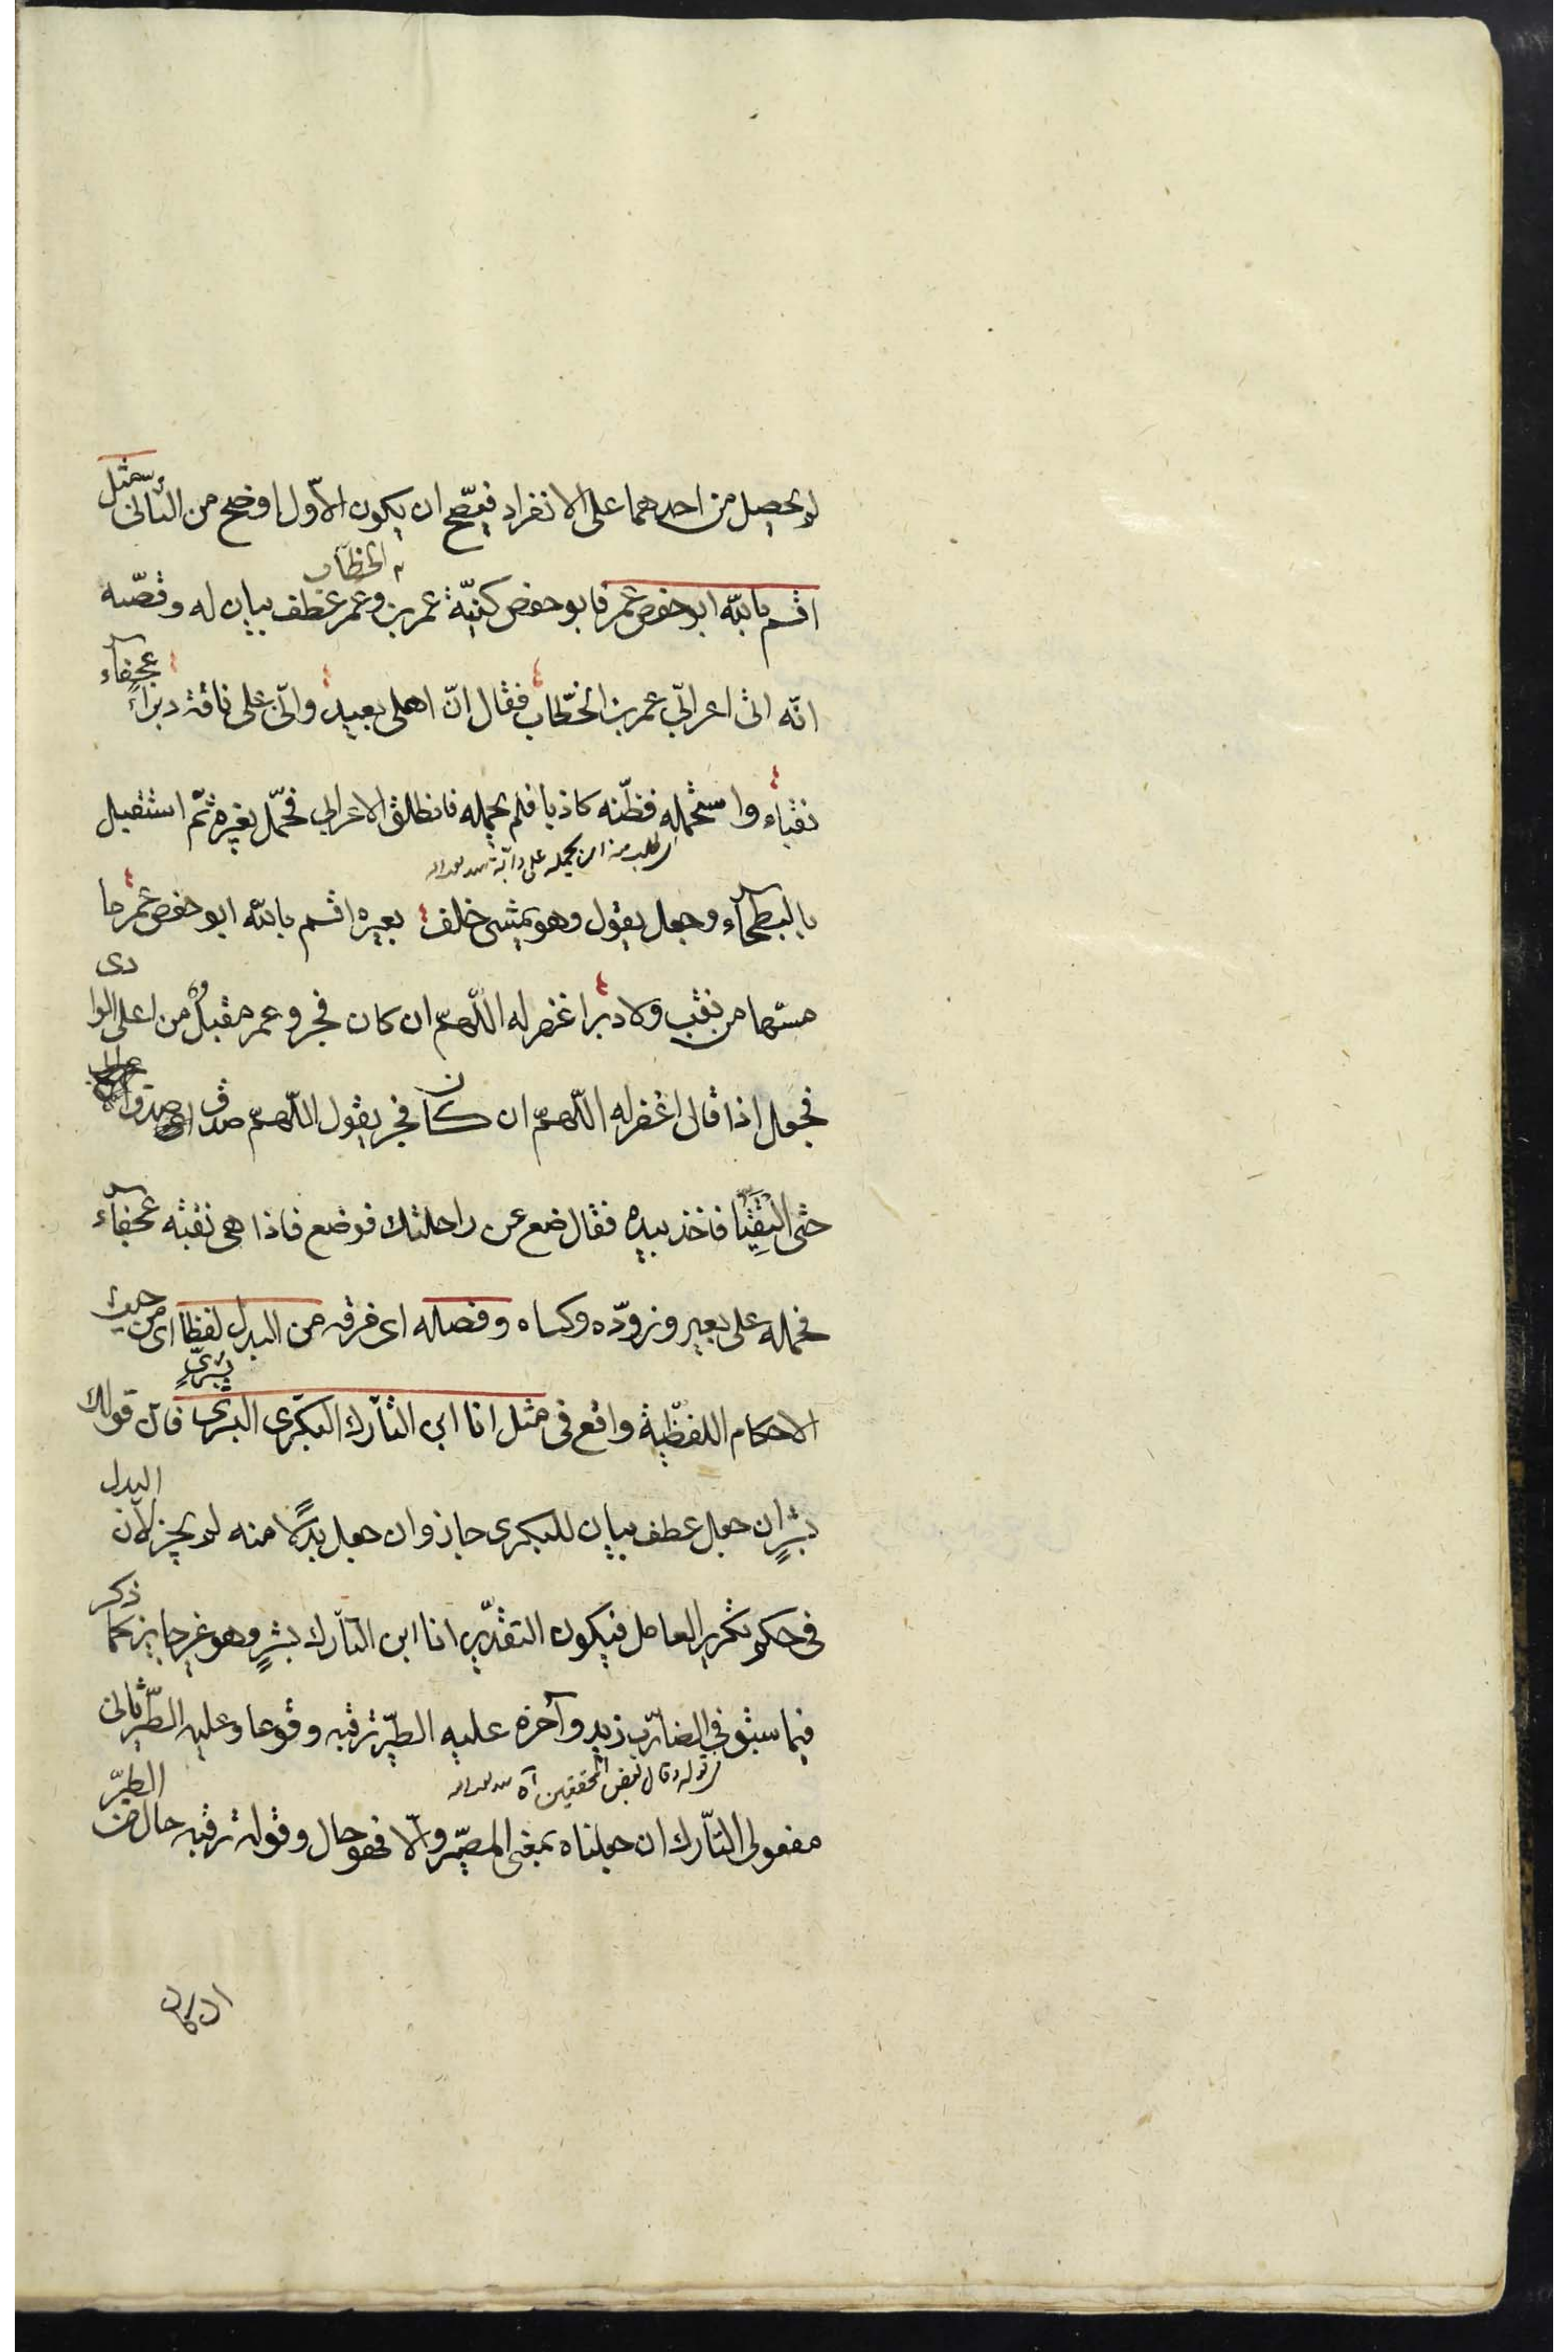 لم يحصل من احدهما على الانفراد فيصّح ان يكون الاّول اوضح من الثّانى مثل
اقسم باللّه ابو حفص عمر فابو حفص كنيّة عمر بن الخطّاب وعمر عطف بيان له وقصّته
انّه اتى اعرابّى عمر بن الخطّاب فقال انّ اهلى بعيد وانّى على ناقة دبرآء عجفآء
نقباء واستحمله فظّنه كاذبا فلم يحمله فانطلق الاعرابي فحمّل بعيره ثمّ استقبل
اى طلب منه ان يحمله على دآبّة
بالبطحآء وجعل يقول وهو يمشى خلف بعيره اقسم باللّه ابو حفص عمر ما
مسّها من نقب ولا دبر اغفر له اللّهمّ ان كان فجر و عمر مقبل من اعلى الوادى
فجعل اذا قال اغفر له اللّهمّ ان كان فجر يقول اللّهمّ صدق
حتى التقيا فاخذ بيده فقال ضع عن راحلتك فوضع فاذا هى نقبه عجفآء
فحمله على بعير وزوّده وكساه وفصله اى فرقه من البدل لفظا اى من حيث
الاحكام اللفظّية واقع فى مثل انا ابن التّارك البكرّى بشرٍ فانّ قولك
بشرٍ ان جعل عطف بيان للبكرى جاز وان جعل بدلاً منه لم يجز لانّ البدل
فى حكم تكرير العامل فيكون التقدير انا ابن التّارك بشرٍ وهو غير جايز كما ذكر
فيما سبق فى الضاّرب زيد وآخره عليه الطّير ترقبه وقوعا وعليه الطّير ثانى
قوله وقال بعض المحققين آه
مفعولى التّارك ان جعلناه بمعنى المصيّر والّا فهو حال وقوله ترقبه حال من الطيّر
ان كان